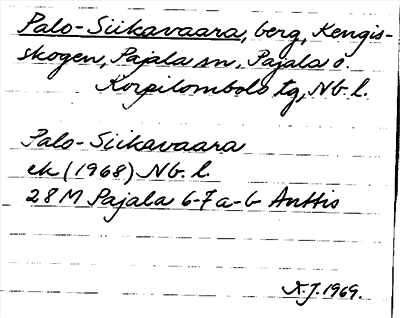 Palo-Siikavaara, berg, Kengis-
skogen, Pajala sn, Pajala o.
Korpilombolo tg, Nb. l.
Palo-Siikavaara
ek (1968) Nb. l.
28 M Pajala 6-7 a-b Anttis
1969.